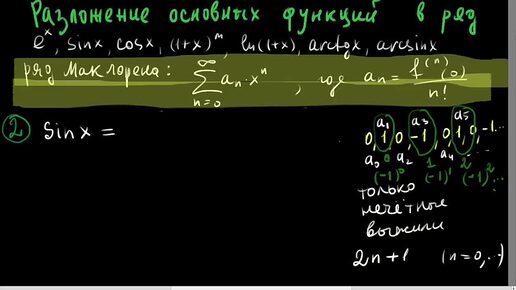 Разложение основных функций в ряд
e^x, sinx, cosx, (1+x)^m, ln(1+x), arctgx, arcsinx
ряд Маклорена: ∑_{n=0}^{∞} a_n·x^n, где a_n = f^{(n)}(0)/n!
② Sinx =
a₁ a₃ a₅
0, 1, 0, -1, 0, 1, 0, -1...
a₀ a₂ a₄ ...
0 1 2
(-1)^0 (-1)^1 (-1)^2 ...
только
нечётные
выжили
2n+1 (n=0,..)